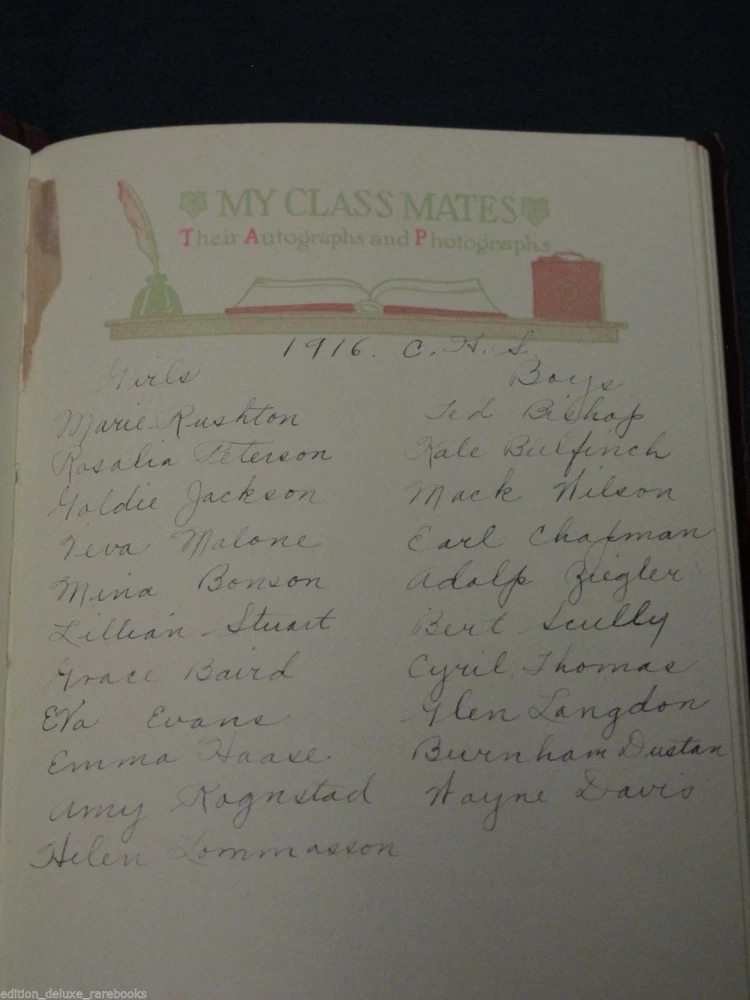 MY CLASS MATES
Their Autographs and Photographs
1916. C. H. S.
Girls
Marie Rushton
Rosalia Peterson
Goldie Jackson
Neva Malone
Mina Bonson
Lillian Stuart
Grace Baird
Eva Evans
Emma Haase
Amy Rognstad
Helen Lommasson
Boys
Ted Bishop
Kale Bulfinch
Mack Wilson
Earl Chapman
Adolp Ziegler
Bert Scully
Cyril Thomas
Glen Langdon
Burnham Dustan
Wayne Davis
edition_deluxe_rarebooks